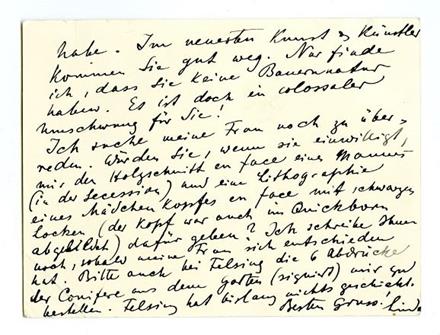 habe. Im neuesten Kunst & Künstler
kommen Sie gut weg. Nur finde
ich, dass Sie keine Bauernnatur
haben. Es ist doch ein colossaler
Umschwung für Sie!
Ich suche meine Frau noch zu über-
reden. Würden Sie, wenn sie einwilligt,
mir den Holzschnitt en face eines Mannes
(in der Secession) und eine Lithographie
eines Mädchenkopfes en face mit schwarzen
Locken (der Kopf war auch im Quickborn
abgebildet) dafür geben? Ich schreibe Ihnen
noch, sobald meine Frau sich entschieden
hat. Bitte auch bei Felsing die 6 Abdrücke
der Conifere aus dem Garten (signiert) mir zu
bestellen. Felsing hat bislang nichts geschickt.
Besten Gruss! Linde